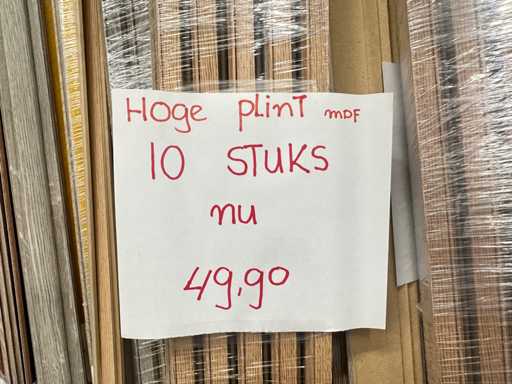 Hoge plinT MDF
10 STUKS
nu
49,90